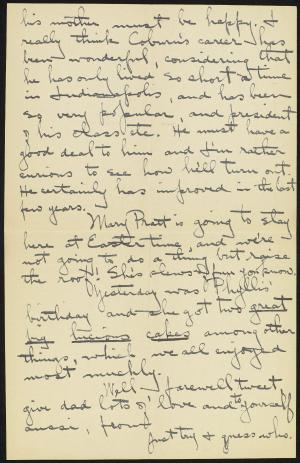 his mother must be happy. I
really think Coburn's career has
been wonderful, considering that
he has only lived so short a time
in Indianapolis, and has been
so very popular, and president
of his class etc. He must have a
good deal to him and I'm rather
curious to see how he'll turn out.
He certainly has improved in the last
few years.
Mary Pratt is going to stay
here at Easter time, and we're
not going to do a thing but raise
the roof! She's slews of fun you know.
Yesterday was Phyllis'
birthday and she got two great
big luscious cakes among other
things, which we all enjoyed
most muchly.
Well farewell tweet
give dad lots o' love and to yourself
aussi, from
Just try & guess who.